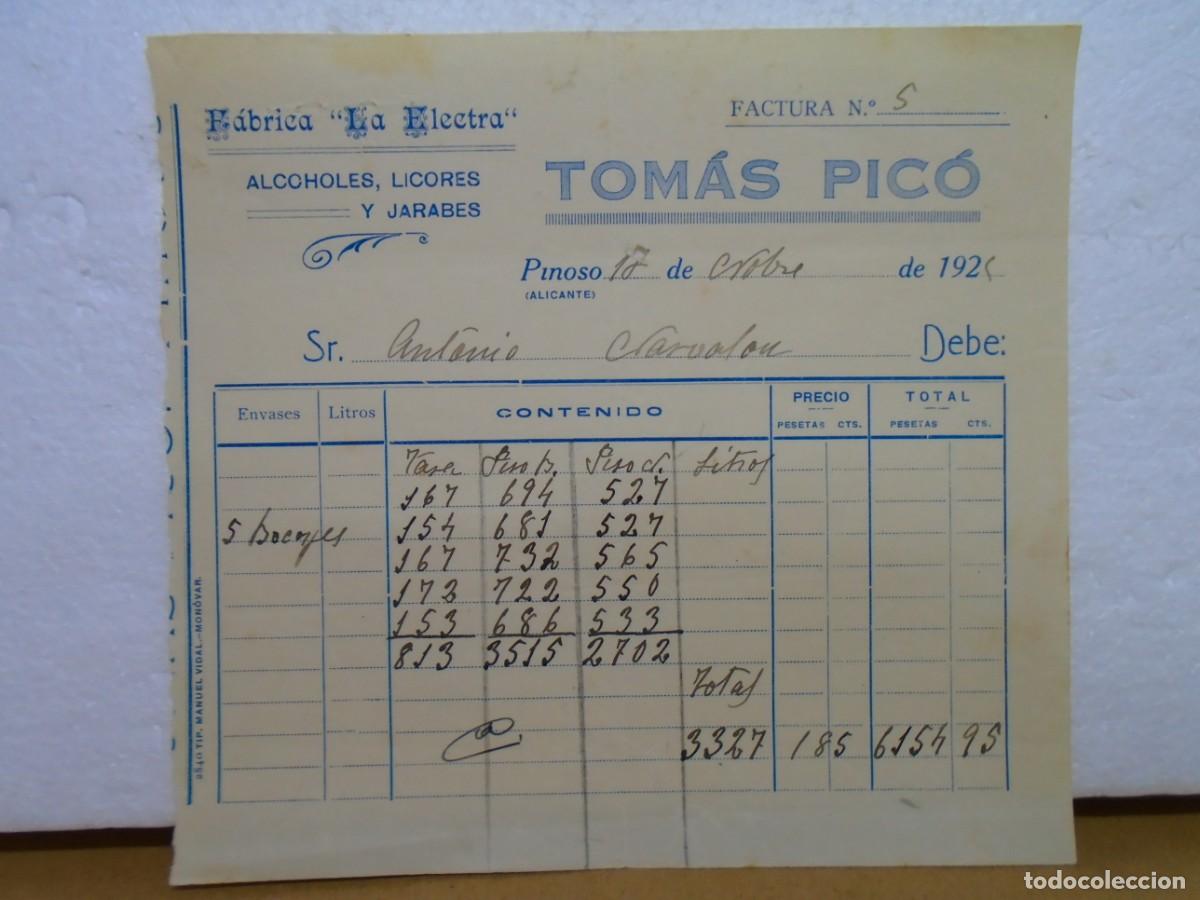 Fábrica "La Electra"
ALCOHOLES, LICORES
Y JARABES
FACTURA N.º 5
TOMÁS PICÓ
PINOSO 17 de de 192
(ALICANTE)
Sr. Antonio Debe:
Envases Litros CONTENIDO PRECIO TOTAL
PESETAS CTS. PESETAS CTS.
Tara Peso b. Peso n. Litros
167 694 527
5 154 681 527
167 732 565
172 722 550
153 686 533
813 3515 2702
Total
3327 1 85 6154 95
2840 TIP. MANUEL VIDAL.-MONÓVAR.
todocoleccion